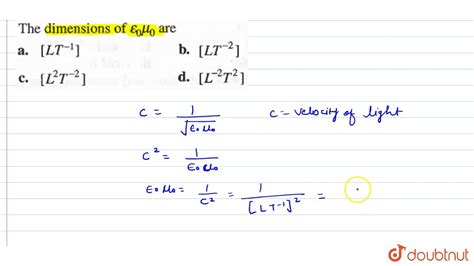 The dimensions of ε₀μ₀ are
a. [LT⁻¹] b. [LT⁻²]
c. [L²T⁻²] d. [L⁻²T²]
c = 1/√ε₀μ₀ c – velocity of light
c² = 1/ε₀μ₀
ε₀μ₀ = 1/c² = 1/[LT⁻¹]² =
doubtnut